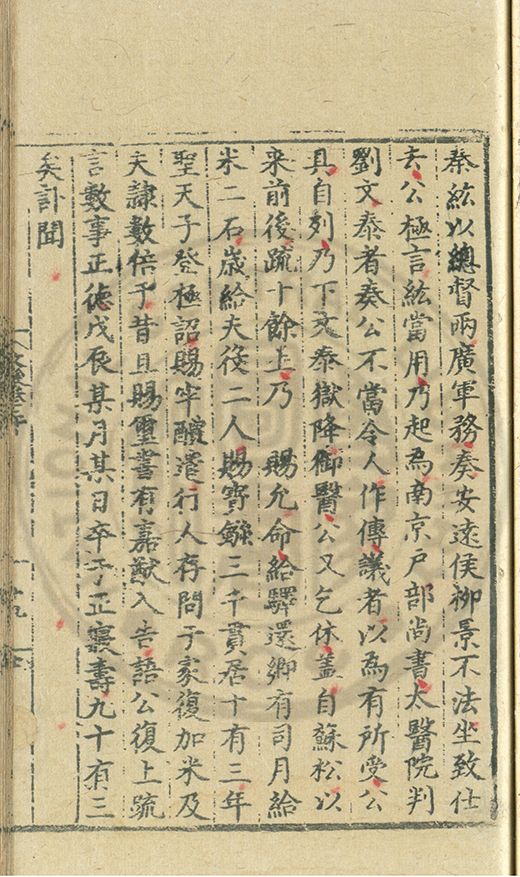 秦紘以總督兩廣軍務奏安遠侯柳景不法坐致仕
去公極言紘當用乃起為南京戶部尚書太醫院判
劉文泰者奏公不當令人作傳議者以為有所受公
具自列乃下文泰獄降御醫公又乞休盖自蘇松以
来前後疏十餘上乃 賜允命給驛還鄉有司月給
米二石歲給夫役二人賜寳鏹三千貫居十有三年
聖天子登極詔賜牢醴遣行人存問于家復加米及
夫隷數倍于昔且賜璽書有嘉猷入告語公復上疏
言數事正徳戊辰某月某日卒于正寢壽九十有三
矣訃聞